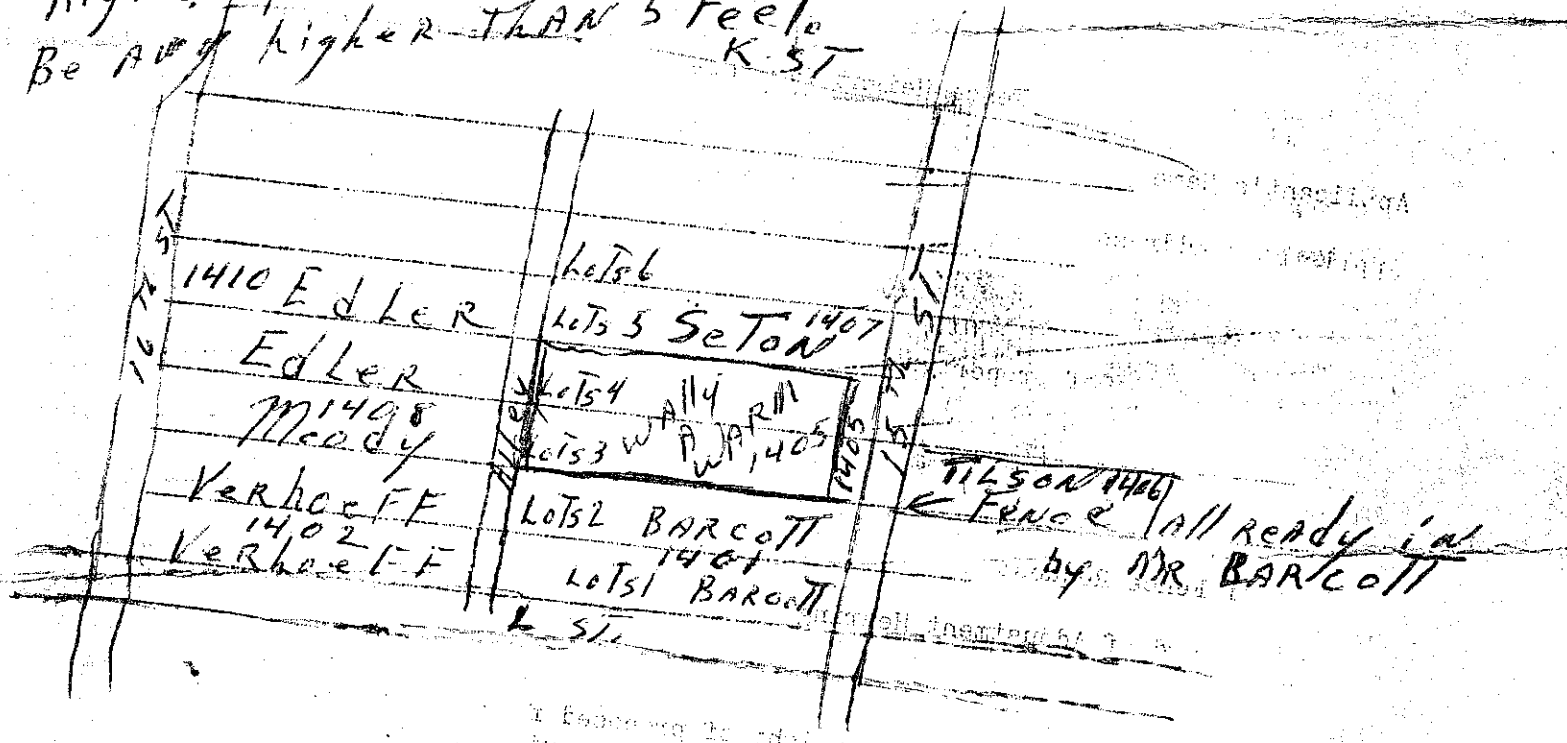 Be Any higher THAN 5 Feet.
K ST
16 Th ST
1410 EdLeR
EdLeR
1408
Moody
VerhoeFF
1402
VeRhoeFF
Alley
LoTs6
LoTs 5 SeToN 1407
LoTs4 WAlly
LoTs3 AWARM 1405
1405
LoTs2 BARCOTT
1401
LoTs1 BARCOTT
L ST.
15 Th ST.
TILSON 1406
← FeNce All ReAdy in
by MR BARCOTT
Applicant's Name